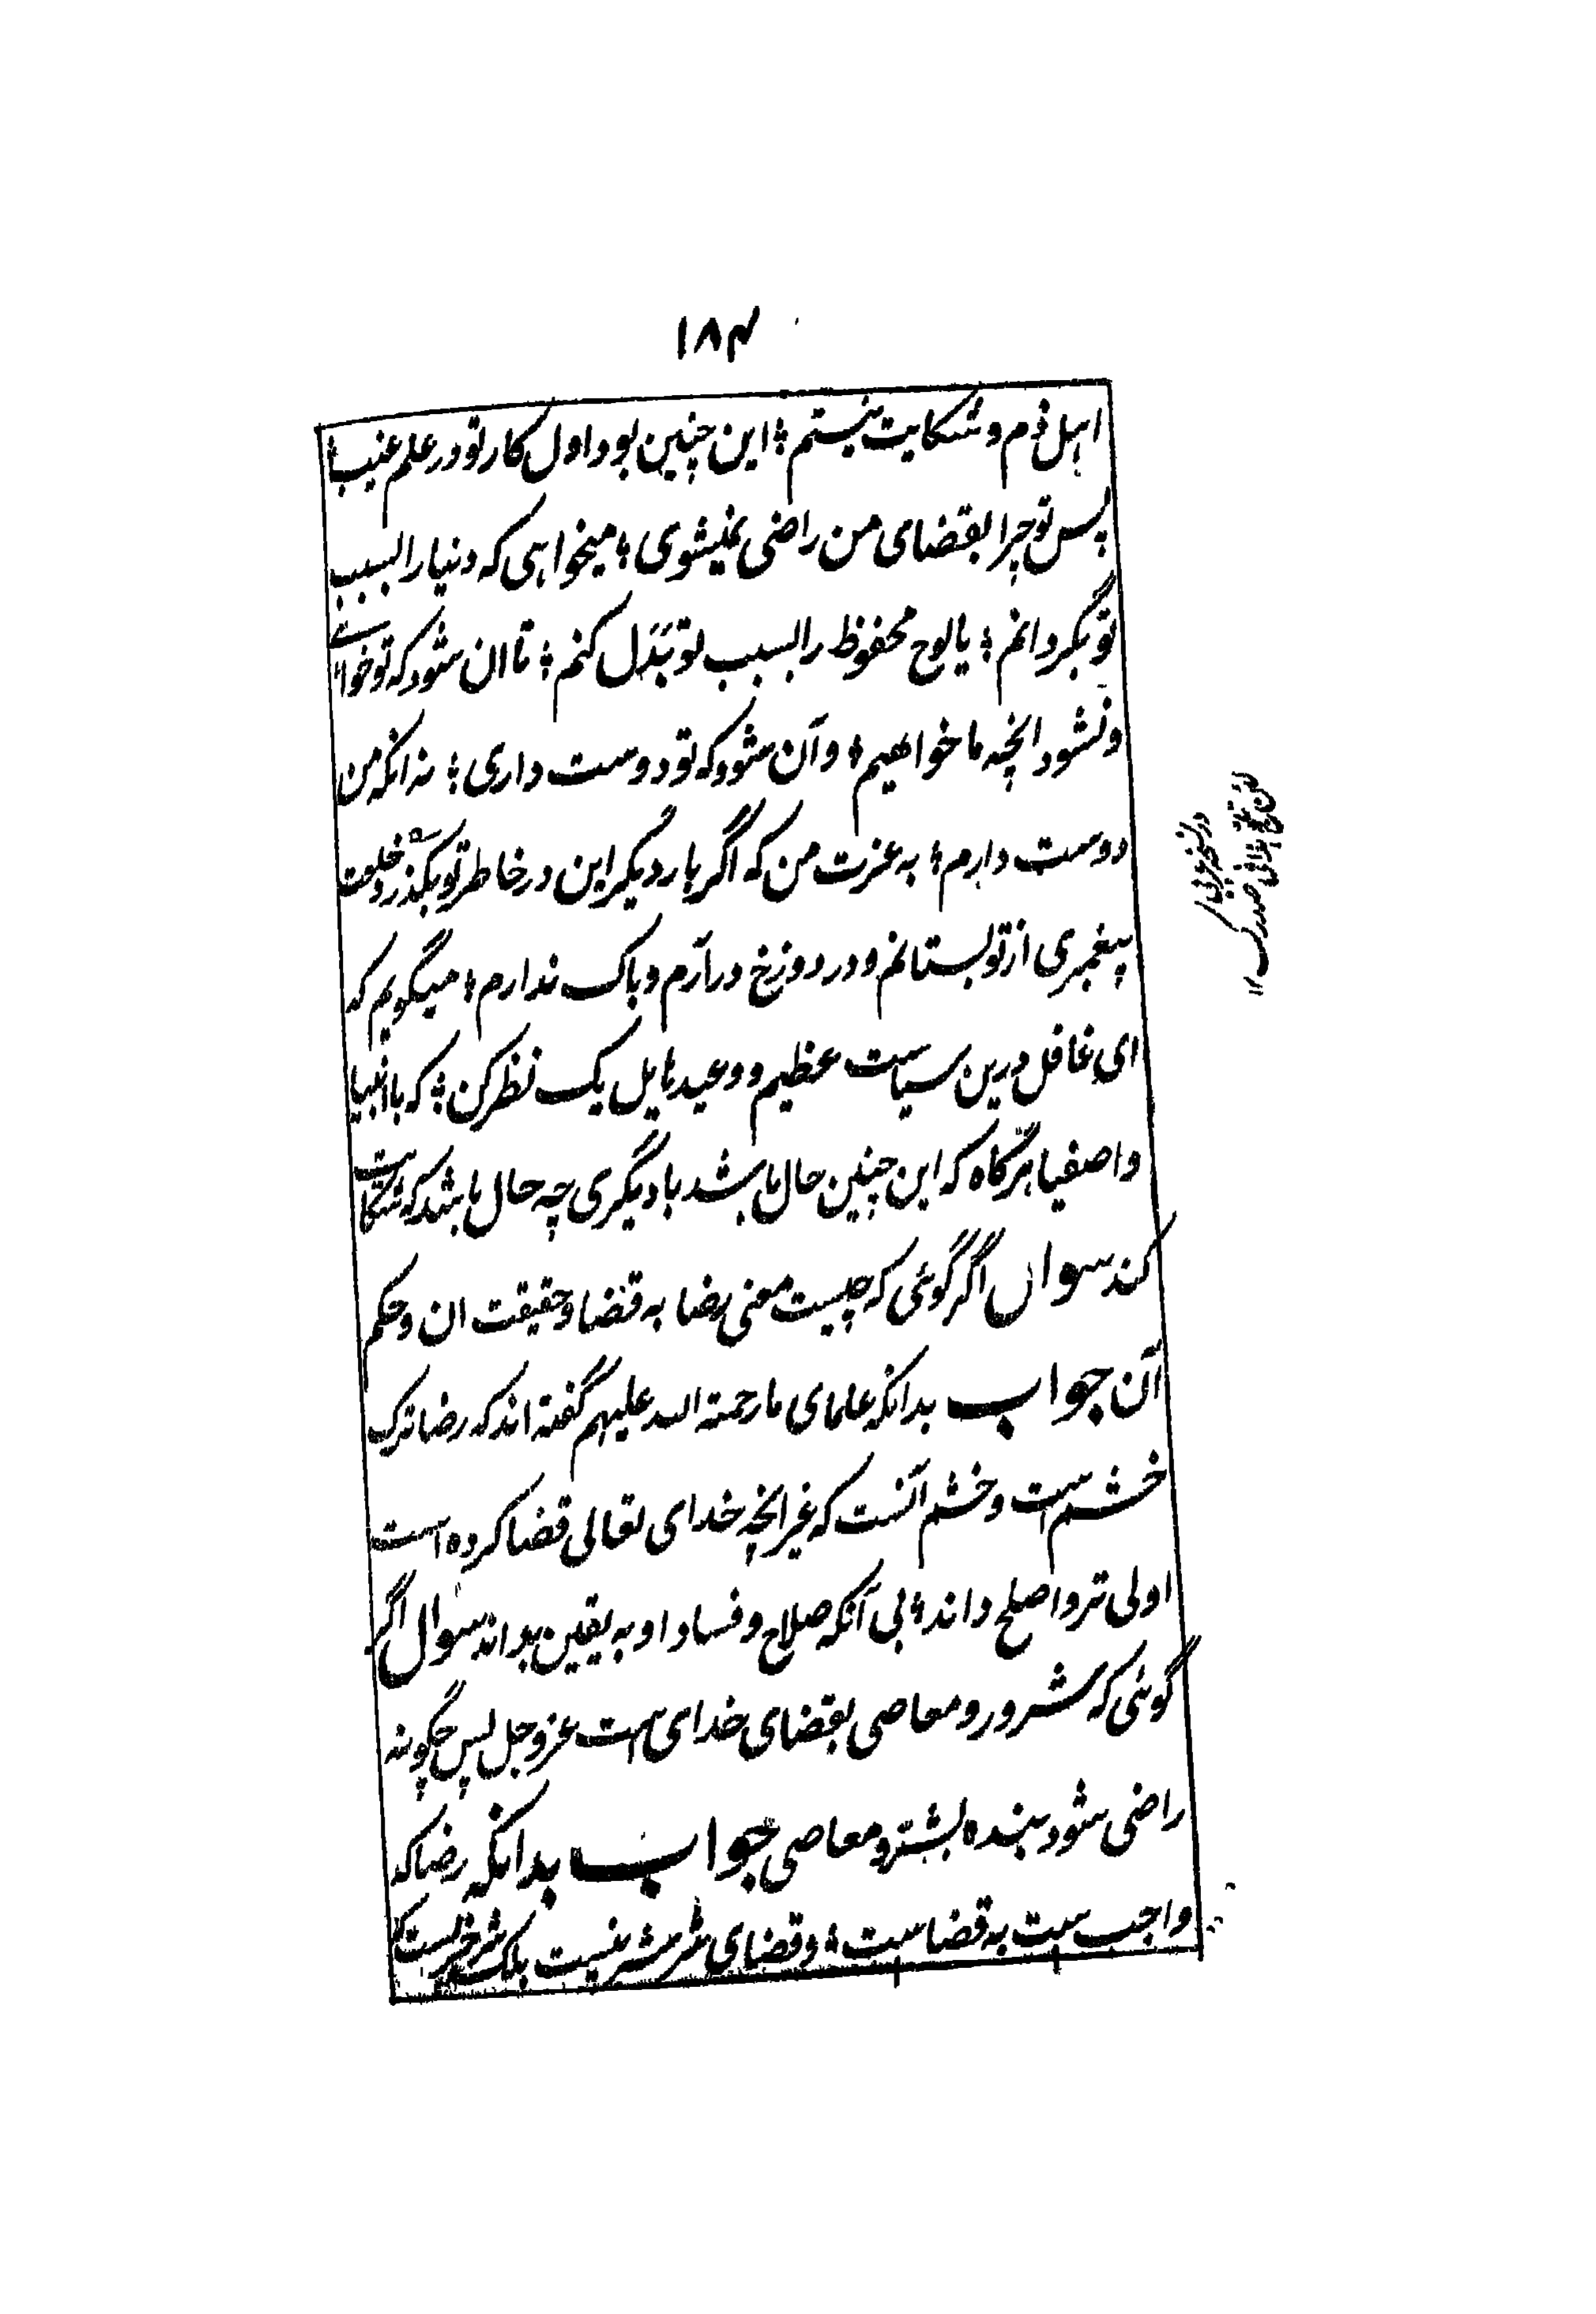 ۱۸۴
اهل ذم و شکایت نیستم ؛ این چنین بود اول کار تو در علم غیب
پس تو چرا بقضای من راضی نمیشوی ؛ میخواهی که دنیا را بسبب
تو بگردانم ؛ یا لوح محفوظ را بسبب تو بَدَل کنم ؛ تا ان شود که تو خواهے
و نشود انچه ما خواهیم ؛ و آن شود که تو دوست داری ؛ نه انکه من
دوست دارم ؛ به عزت من که اگر بار دیگر این در خاطر تو بگذرد خلعت
پیغمبری از تو بستانم و در دوزخ درآرم و باک ندارم ؛ میگویم که
ای غافل درین سیاست عظیم و وعید هایل یک نظر کن ؛ که با انبیا
و اصفیا هرگاه که این چنین حال باشد با دیگری چه حال باشد که شکایت
کند سوال اگر گوئی که چیست معنی رضا به قضا و حقیقت ان و حکم
آن جواب بدانکه علمای ما رحمته الله علیهم گفته اند که رضا ترک
خشم ست و خشم آنست که غیر انچه خدای تعالی قضا کرده است
اولی تر و اصلح داند ؛ بی آنکه صلاح و فساد او به یقین بداند سوال اگر
گوئی که شرور و معاصی بقضای خدای ست عز و جل پس چگونه
راضی شود بنده بشر و معاصی جواب بدانکه رضا که
واجب ست به قضا ست ؛ و قضای شر شر نیست بلکه
در نسخه عربی